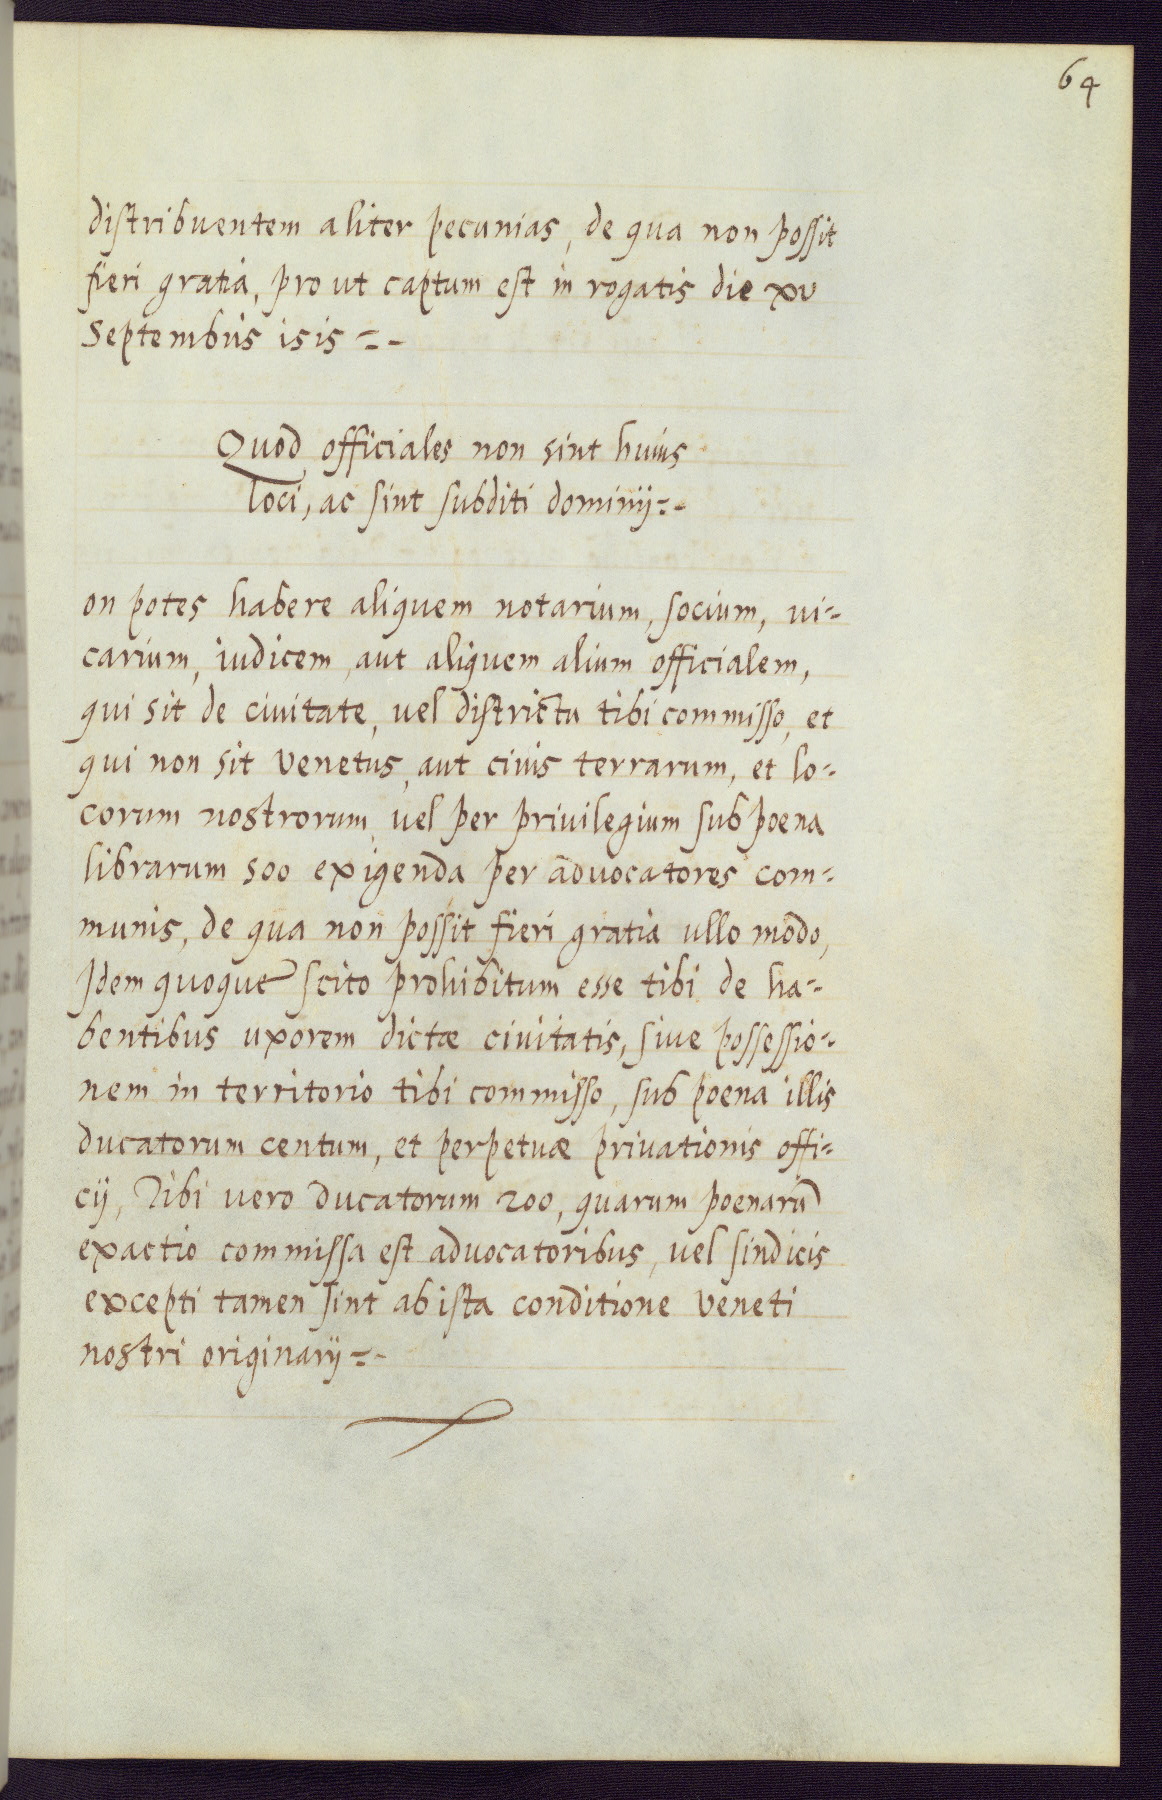 64
distribuentem aliter pecunias, de qua non possit
fieri gratia, pro ut captum est in rogatis die xv
Septembris isis =-
Quod officiales non sint huius
loci, ac sint subditi dominij=-
on potes habere aliquem notarium, socium, vi=
carium, iudicem, aut aliquem alium officialem,
qui sit de civitate, vel districtu tibi commisso, et
qui non sit venetus, aut civis terrarum, et lo=
corum nostrorum, vel per privilegium sub poena
librarum 500 exigenda per advocatores com=
munis, de qua non possit fieri gratia ullo modo,
Idem quoque scito prohibitum esse tibi de ha=
bentibus uxorem dictæ civitatis, sive possessio=
nem in territorio tibi commisso, sub poena illis
ducatorum centum, et perpetuæ privationis offi=
cij, Tibi vero ducatorum 200, quarum poenarū
exactio commissa est advocatoribus, vel sindicis
excepti tamen sint ab ista conditione veneti
nostri originarij=-